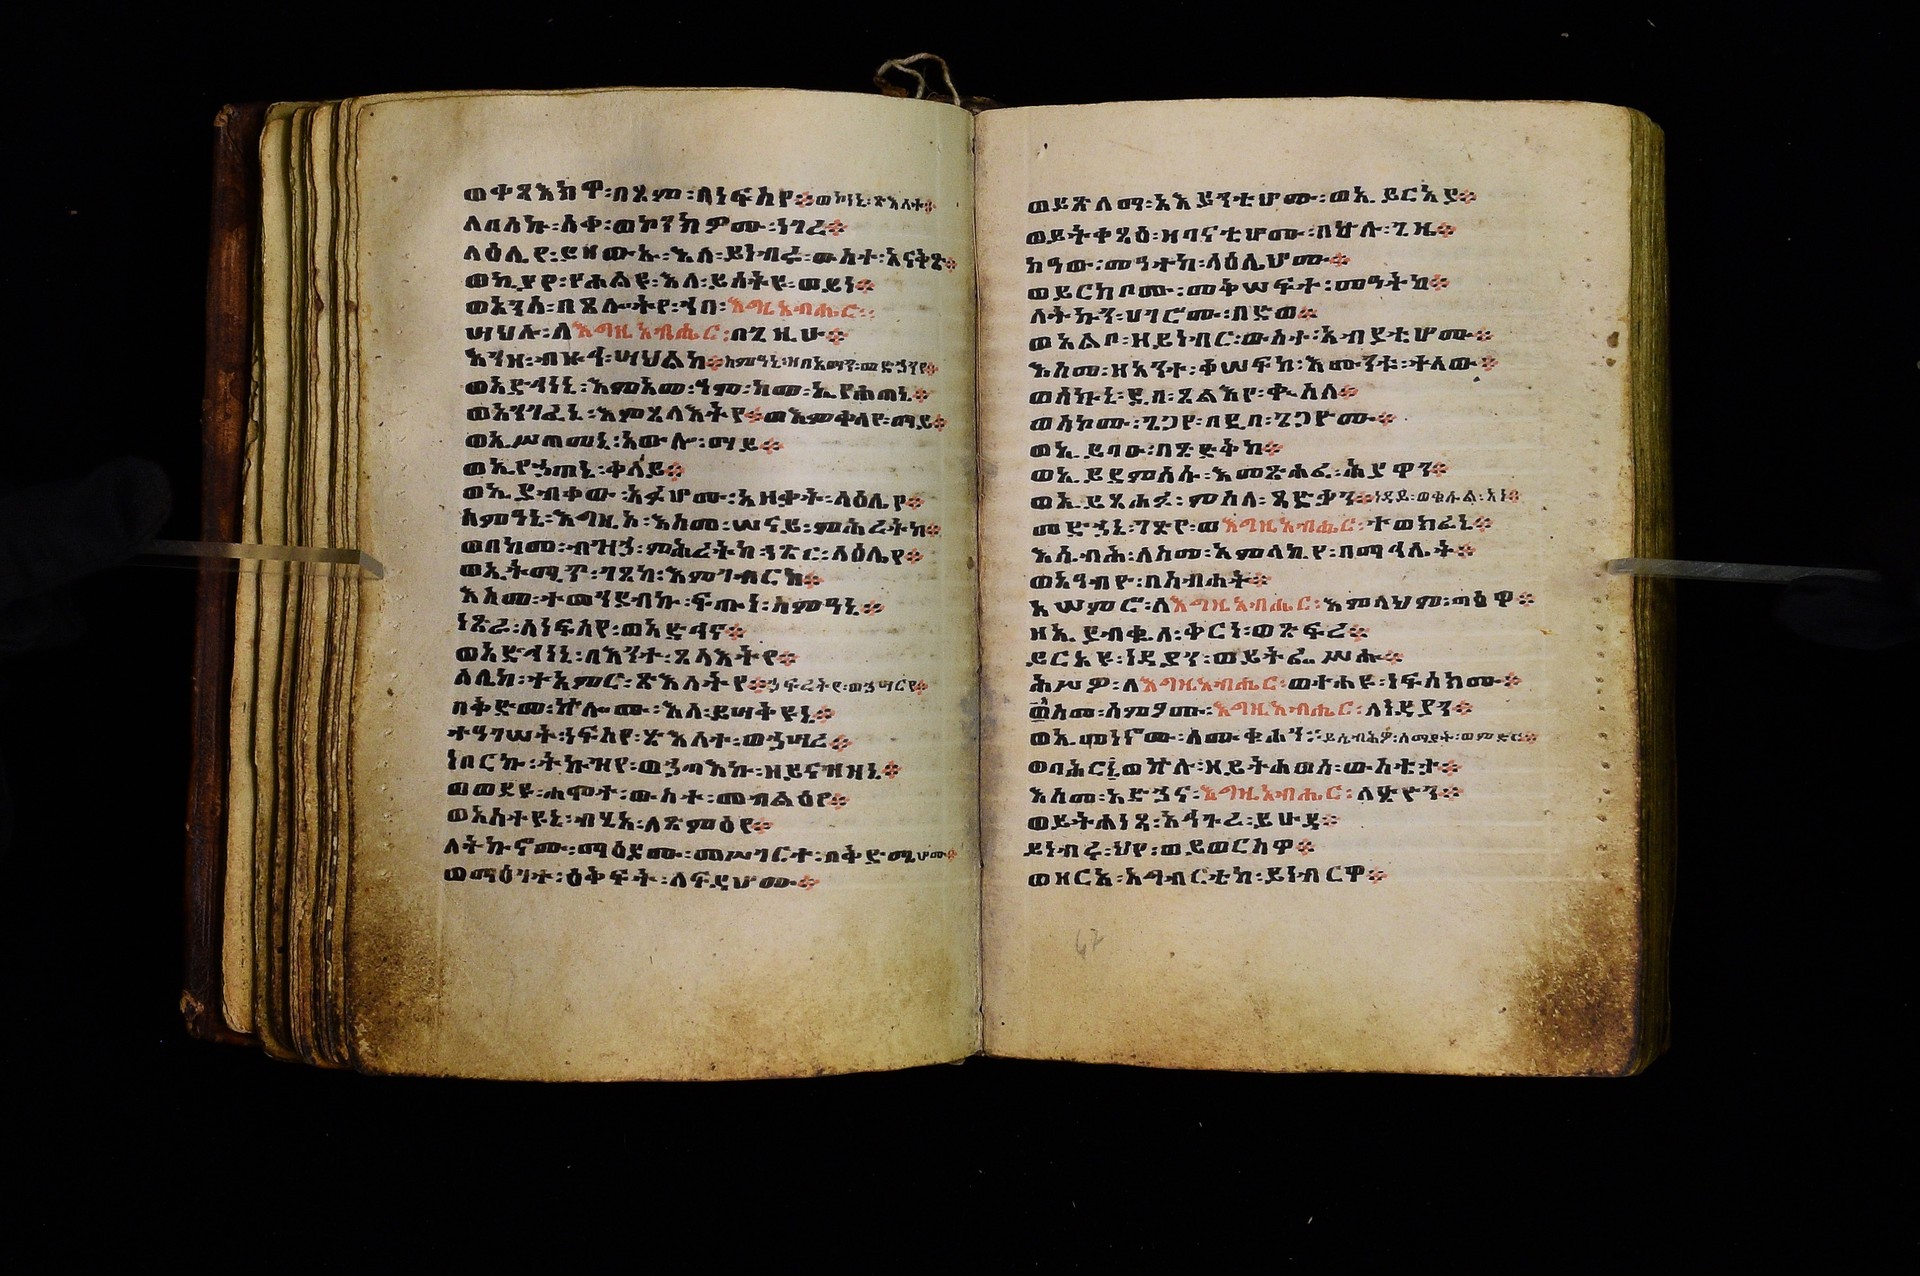 ወቀጻእክዋ፡በጾም፡ለነፍስየ፨ወኮነኒ፡ጽእለተ፨
ለበስኩ፡ሰቀ፡ወኮንክዎሙ፡ነገረ፨
ላዕሌየ፡ይዛውኡ፡እለ፡ይነብሩ፡ውስተ፡አናቅጽ፨
ወኪያየ፡የሐልዩ፡እለ፡ይሰትዩ፡ወይነ፨
ወአንሰ፡በጸሎትየ፡ኀበ፡እግዚአብሔር፡፡
ሣህሉ፡ለእግዚአብሔር፡በጊዜሁ፨
እንዘ፡ብዙኅ፡ሣህልከ፨ስምዓኒ፡ዘበአማን፡መድኃንየ፨
ወአድኅነኒ፡እምአመ፡ዓም፡ከመ፡ኢየሐጠኒ፨
ወአንግፈኒ፡እምጸላእትየ፨ወእምቀላየ፡ማይ፨
ወኢያስጠመኒ፡አውሎ፡ማይ፨
ወኢየኃጠኒ፡ቀላይ፨
ወኢያብቀው፡አፉሆሙ፡አዘቃት፡ላዕሌየ፨
ስምዓኒ፡እግዚኦ፡እስመ፡ሠናይ፡ምሕረትከ፨
ወበከመ፡ብዝኃ፡ምሕረትከ፡ነጽር፡ላዕሌየ፨
ወኢትሚጥ፡ገጸከ፡እምገብርከ፨
እስመ፡ተመንደብኩ፡ፍጡነ፡ስምዓኒ፨
ነጽራ፡ለነፍስየ፡ወአድኅና፨
ወአድኅነኒ፡በእንተ፡ጸላእትየ፨
ለሊከ፡ተአምር፡ጽእለትየ፨ኃፍረትየ፡ወኃሣርየ፨
በቅድመ፡ኵሎሙ፡እለ፡ይሣቅዩኒ፨
ተዓገሠት፡ነፍስየ፡ጽእለተ፡ወኃሣረ፨
ነበርኩ፡ትኩዝየ፡ወኃጣእኩ፡ዘይናዝዘኒ፨
ወወደዩ፡ሐሞተ፡ውስተ፡መብልዕየ፨
ወአስተዩኒ፡ብሂአ፡ለጽምዕየ፨
ለትኩኖሙ፡ማዕዶሙ፡መሥገርተ፡በቅድሜሆሙ፨
ወማዕገተ፡ዕቅፍት፡ለፍዳሆሙ፨
ወይጽለማ፡አእይንቲሆሙ፡ወኢይርአያ፨
ወይትቀጻዕ፡ዘባናቲሆሙ፡በኵሉ፡ጊዜ፨
ከዓው፡መዓተከ፡ላዕሌሆሙ፨
ወይርከቦሙ፡መቅሠፍተ፡መዓትከ፨
ለትኩን፡ሀገሮሙ፡በድወ፨
ወአልቦ፡ዘይነብር፡ውስተ፡አብያቲሆሙ፨
እስመ፡ዘአንተ፡ቀሠፍከ፡እሙንቱ፡ተለው፨
ወሰኩኒ፡ዲበ፡ጸልእየ፡ቍስለ፨
ወሰኮሙ፡ጌጋየ፡በዲበ፡ጌጋዮሙ፨
ወኢይባኡ፡በጽድቅከ፨
ወኢይደምሰሱ፡እመጽሐፈ፡ሕያዋን፨
ወኢይጸሐፉ፡ምስለ፡ጻድቃን፨ነዳይ፡ወቁሱል፡አነ፨
መድኃኒ፡ገጽየ፡ወእግዚአብሔር፡ተወክፈኒ፨
እሴብሕ፡ለስመ፡አምላኪየ፡በማኅሌት፨
ወአዓብዮ፡በስብሐት፨
አሠምሮ፡ለእግዚአብሔር፡እምላህም፡ጣዕዋ፨
ዘኢያብቈለ፡ቅርነ፡ወጽፍረ፨
ይርአዩ፡ነዳያን፡ወይትፌሥሑ፨
ኅሥዎ፡ለእግዚአብሔር፡ወተሐዩ፡ነፍስክሙ፨
እስመ፡ሰምዖሙ፡እግዚአብሔር፡ለነዳያን፨
ወኢመነኖሙ፡ለሙቁሐን፡፡ይሴብሕዎ፡ሰማያት፡ወምድር፨
ወባሕርኒ፡ወኵሉ፡ዘይትሐወስ፡ውስቴታ፨
እስመ፡አድኃና፡እግዚአብሔር፡ለጽዮን፨
ወይትሐነጻ፡አኅጉረ፡ይሁዳ፨
ይነብሩ፡ህየ፡ወይወርስዋ፨
ወዘርአ፡አግብርቲከ፡ይነብርዋ፨
47